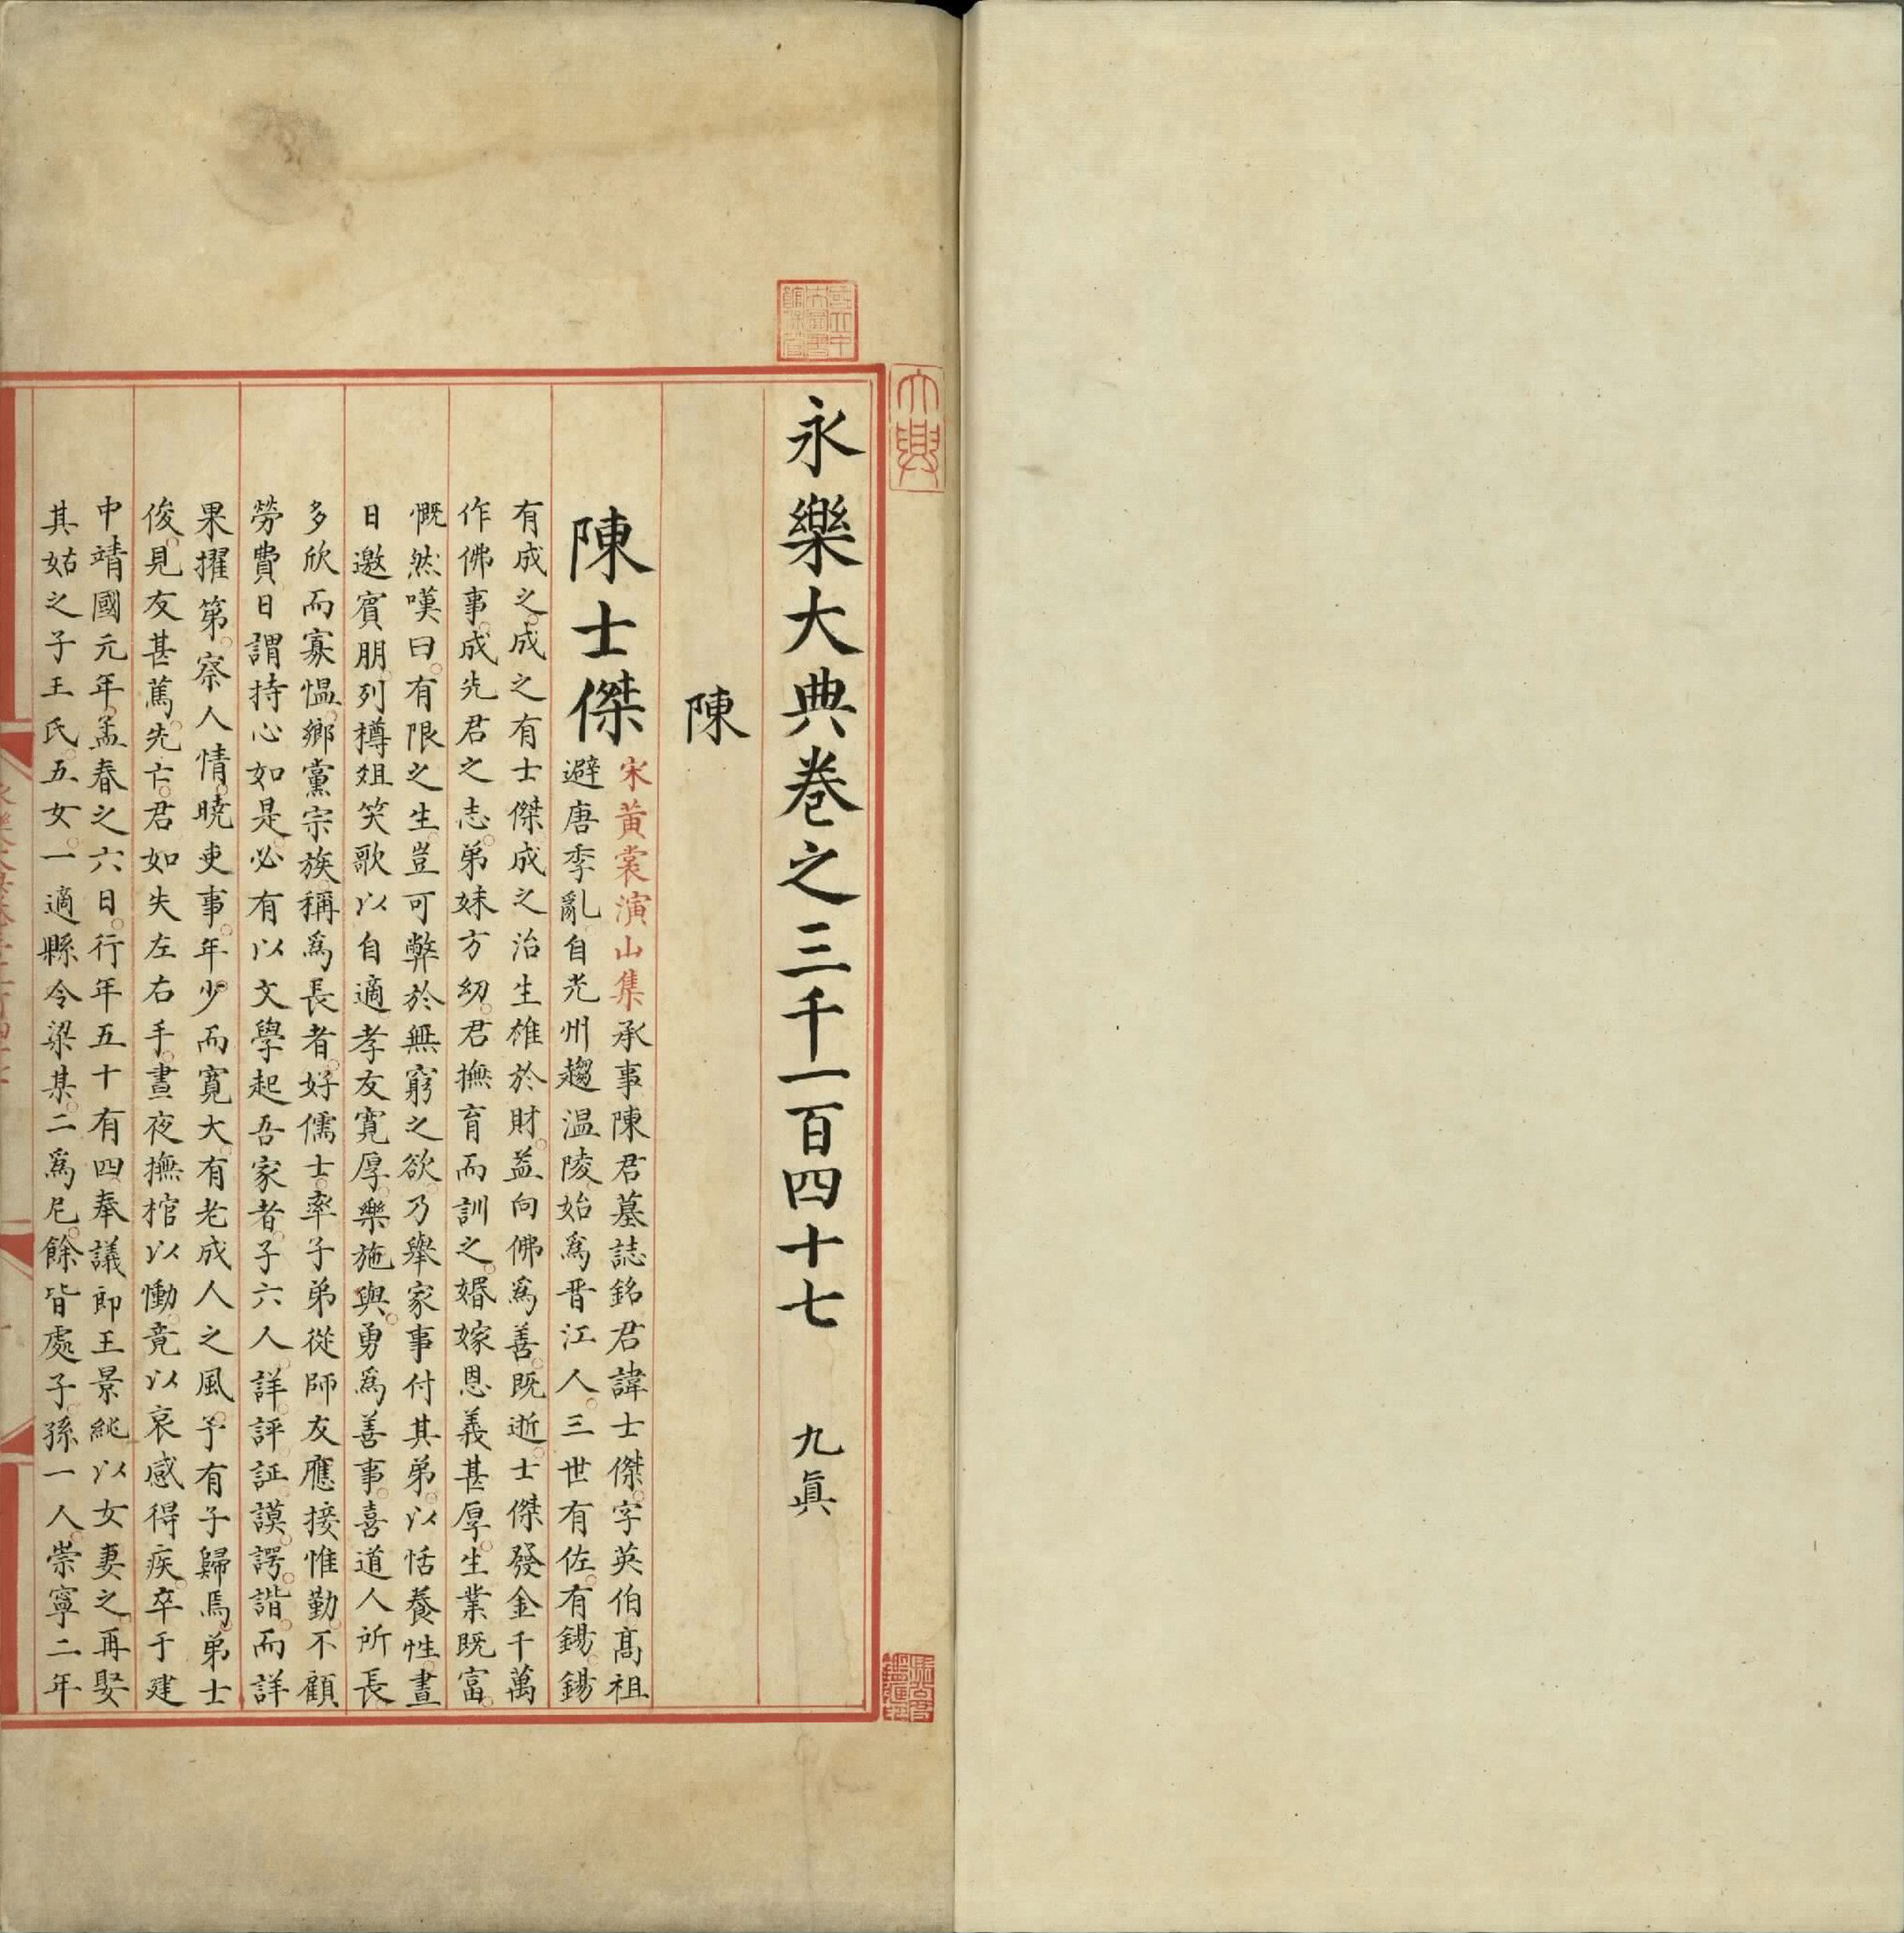 永樂大典卷之三千一百四十七 九眞
陳
陳士傑
宋黃裳演山集承事陳君墓誌銘君諱士傑字英伯髙祖
避唐季亂自光州趨温陵始爲晋江人三世有佐有錫錫
有成之成之有士傑成之治生雄於財益向佛爲善既逝士傑發金千萬
作佛事成先君之志弟妹方幼君撫育而訓之婚嫁恩義甚厚生業既富
慨然嘆曰有限之生豈可弊於無窮之欲乃舉家事付其弟以恬養性晝
日邀賓朋列樽俎笑歌以自適孝友寬厚樂施與勇爲善事喜道人所長
多欣而寡愠鄉黨宗族稱爲長者好儒士率子弟從師友應接惟勤不顧
勞費日謂持心如是必有以文學起吾家者子六人詳評証謨諤諧而詳
果擢第察人情曉吏事年少而寬大有老成人之風予有子歸焉弟士
俊見友甚篤先亡君如失左右手晝夜撫棺以慟竟以哀感得疾卒于建
中靖國元年孟春之六日行年五十有四奉議郎王景純以女妻之再娶
其姑之子王氏五女一適縣令梁某二爲尼餘皆處子孫一人崇寧二年